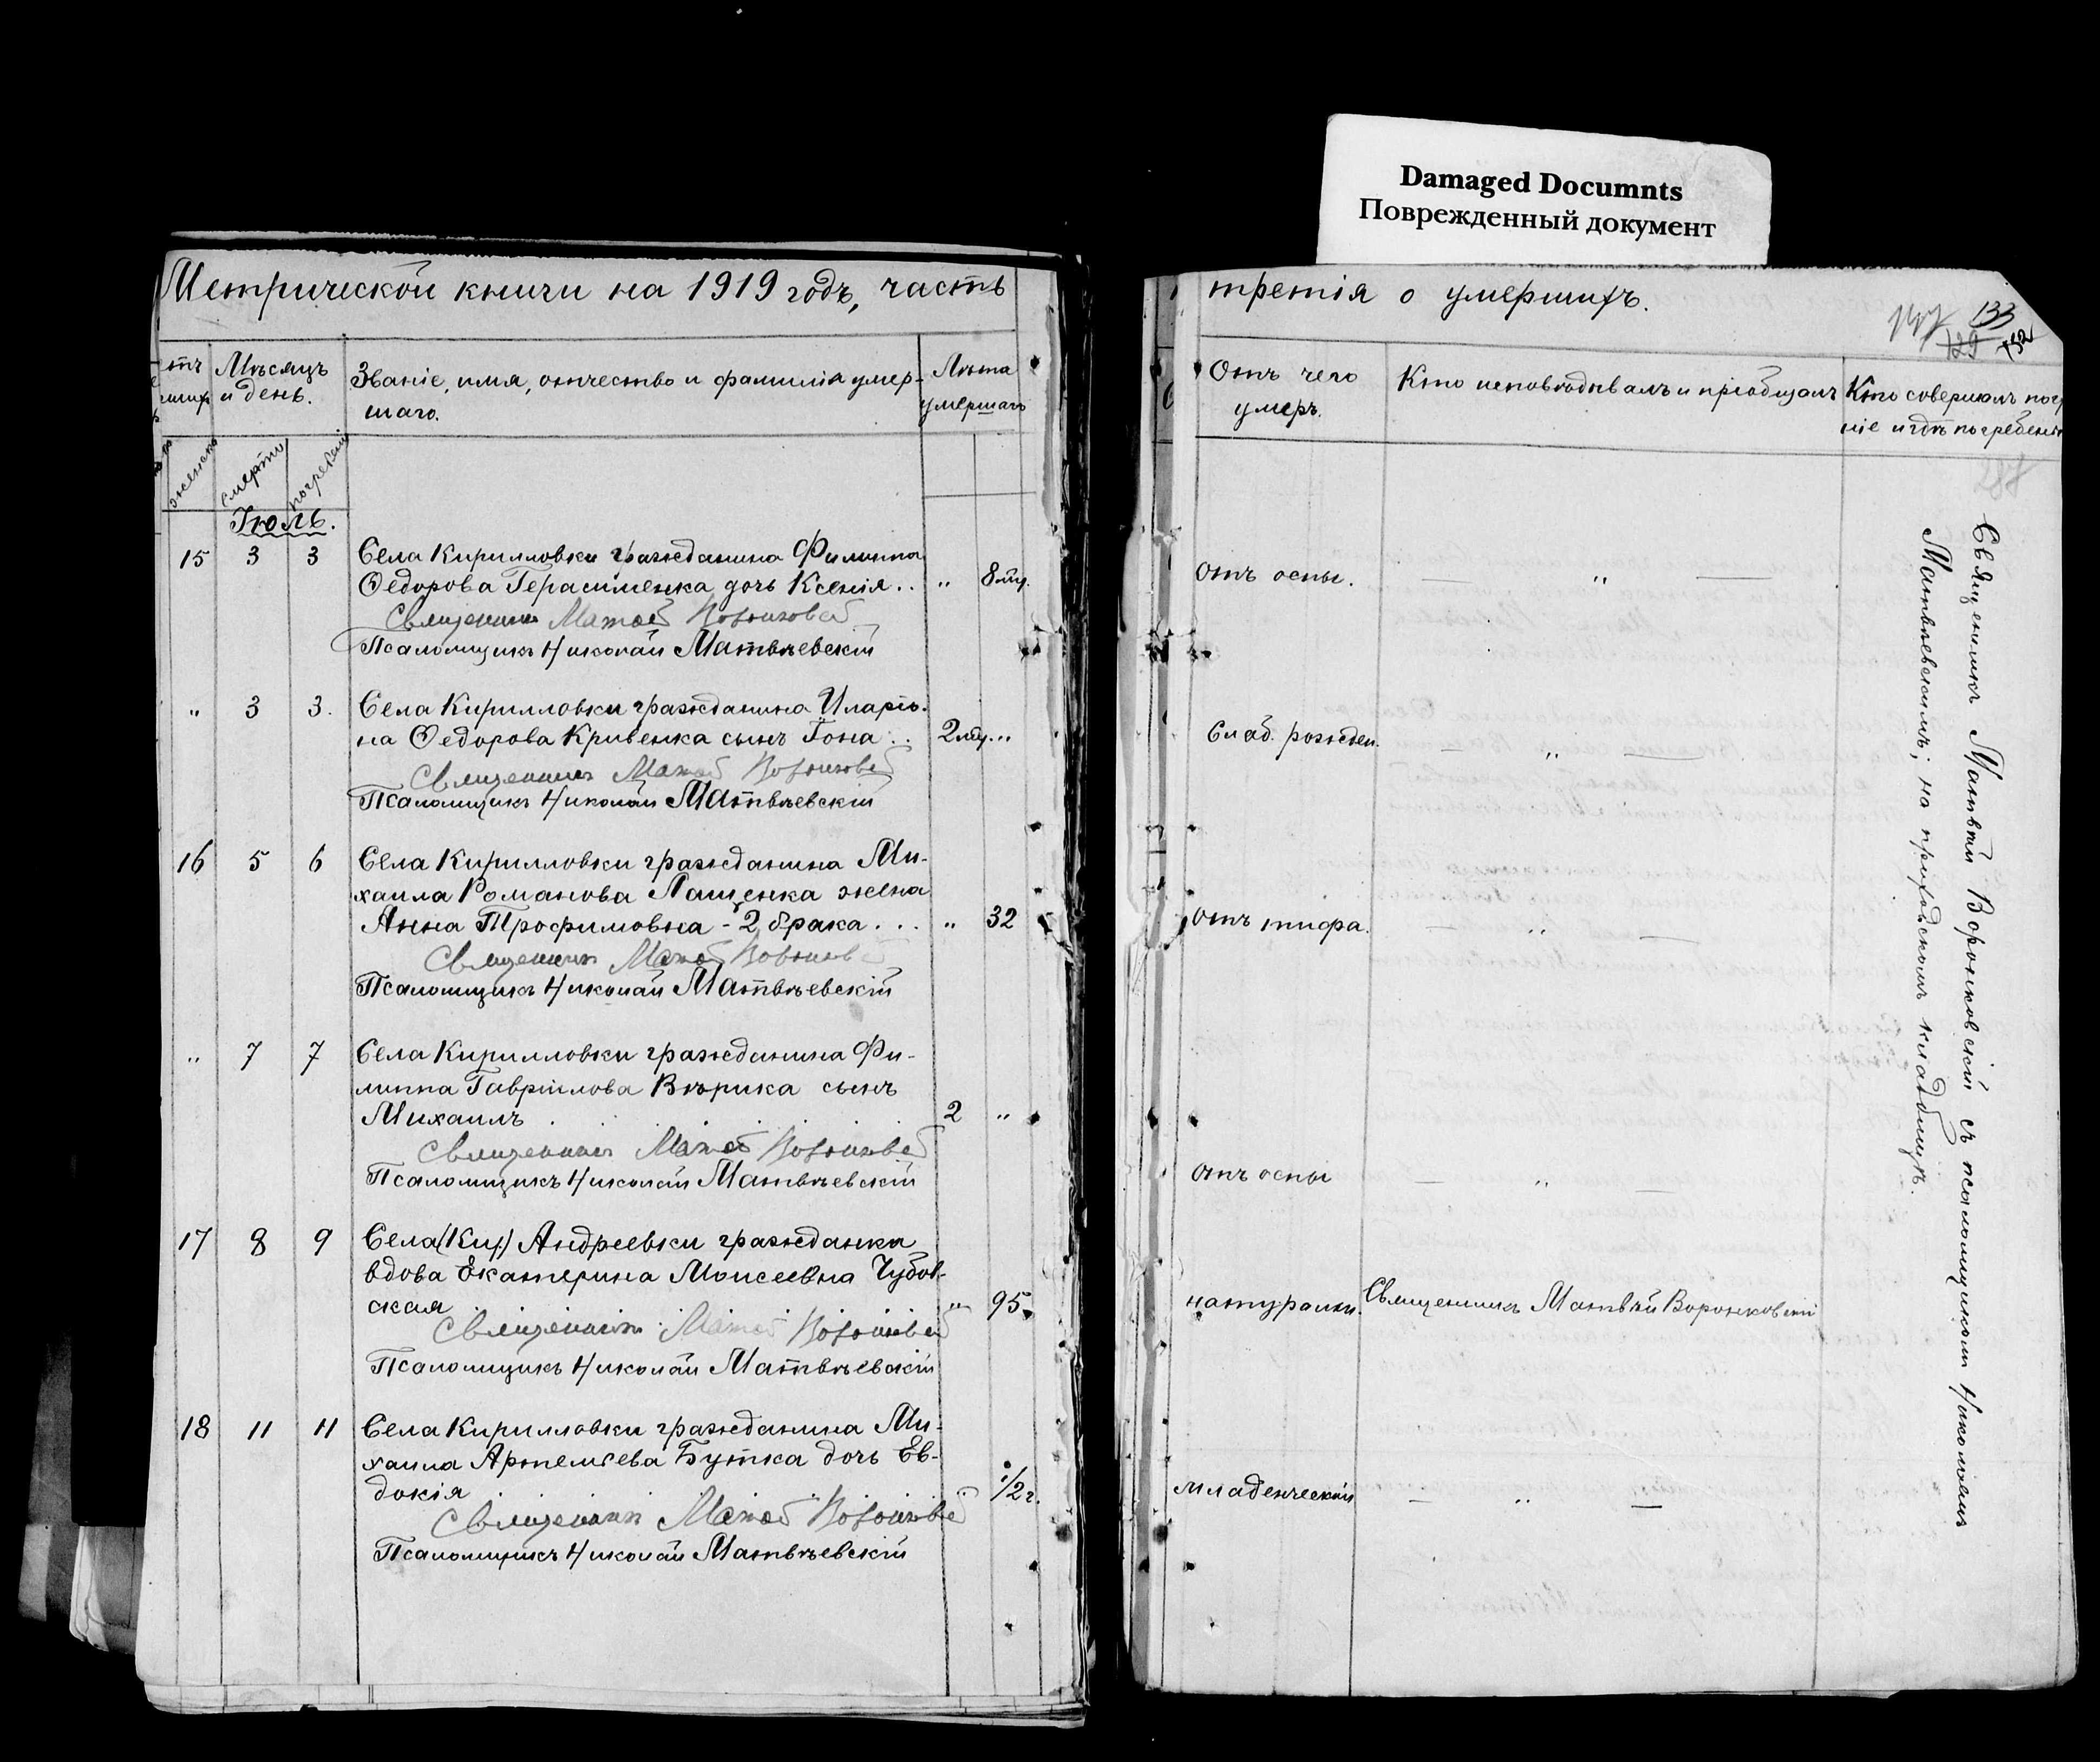 Damaged Documnts
Поврежденный документ
Метрической книги на 1919 годъ, часть
Мѣсяцъ и день.
Званіе, имя, отчество и фамилія умер-
шаго.
Лѣта
умершаго
женска
смерти
погребенія
Іюль.
15 3 3 Села Кирилловки гражданина Филиппа
Ѳедорова Герасименка дочь Ксенія.. „ 8 мц.
Священникъ Матвѣй Воронковскій
Псаломщикъ Николай Матвѣевскій
„ 3 3. Села Кирилловки гражданина Иларіо-
на Ѳедорова Кривенка сынъ Іона.. 2 мц. „
Священникъ Матвѣй Воронковскій
Псаломщикъ Николай Матвѣевскій
16 5 6 Села Кирилловки гражданина Ми-
хаила Романова Лащенка жена
Анна Трофимовна - 2 брака... „ 32
Священникъ Матвѣй Воронковскій
Псаломщикъ Николай Матвѣевскій
„ 7 7 Села Кирилловки гражданина Фи-
липпа Гавріилова Вѣрика сынъ
Михаилъ . . . . 2 „
Священникъ Матвѣй Воронковскій
Псаломщикъ Николай Матвѣевскій
17 8 9 Села (Кир.) Андреевки гражданка
вдова Екатерина Моисеевна Чубов-
ская „ 95.
Священникъ Матвѣй Воронковскій
Псаломщикъ Николай Матвѣевскій
18 11 11 Села Кирилловки гражданина Ми-
хаила Артеміева Бутка дочь Ев-
докія .. 1/2 г.
Священникъ Матвѣй Воронковскій
Псаломщикъ Николай Матвѣевскій
третія о умершихъ.
133
129 132
Отъ чего
умеръ.
Кто исповѣдывалъ и пріобщалъ
Кто совершалъ погр
ніе и гдѣ погребены
287
отъ оспы. — „ —
Слаб. рожден. — „ —
отъ тифа. — „ —
отъ оспы — „ —
натуральн. Священникъ Матвѣй Воронковскій
младенческій — „ —
Священникъ Матвѣй Воронковскій съ псаломщикомъ Николаемъ
Матвѣевскимъ; на приходскомъ кладбищѣ.